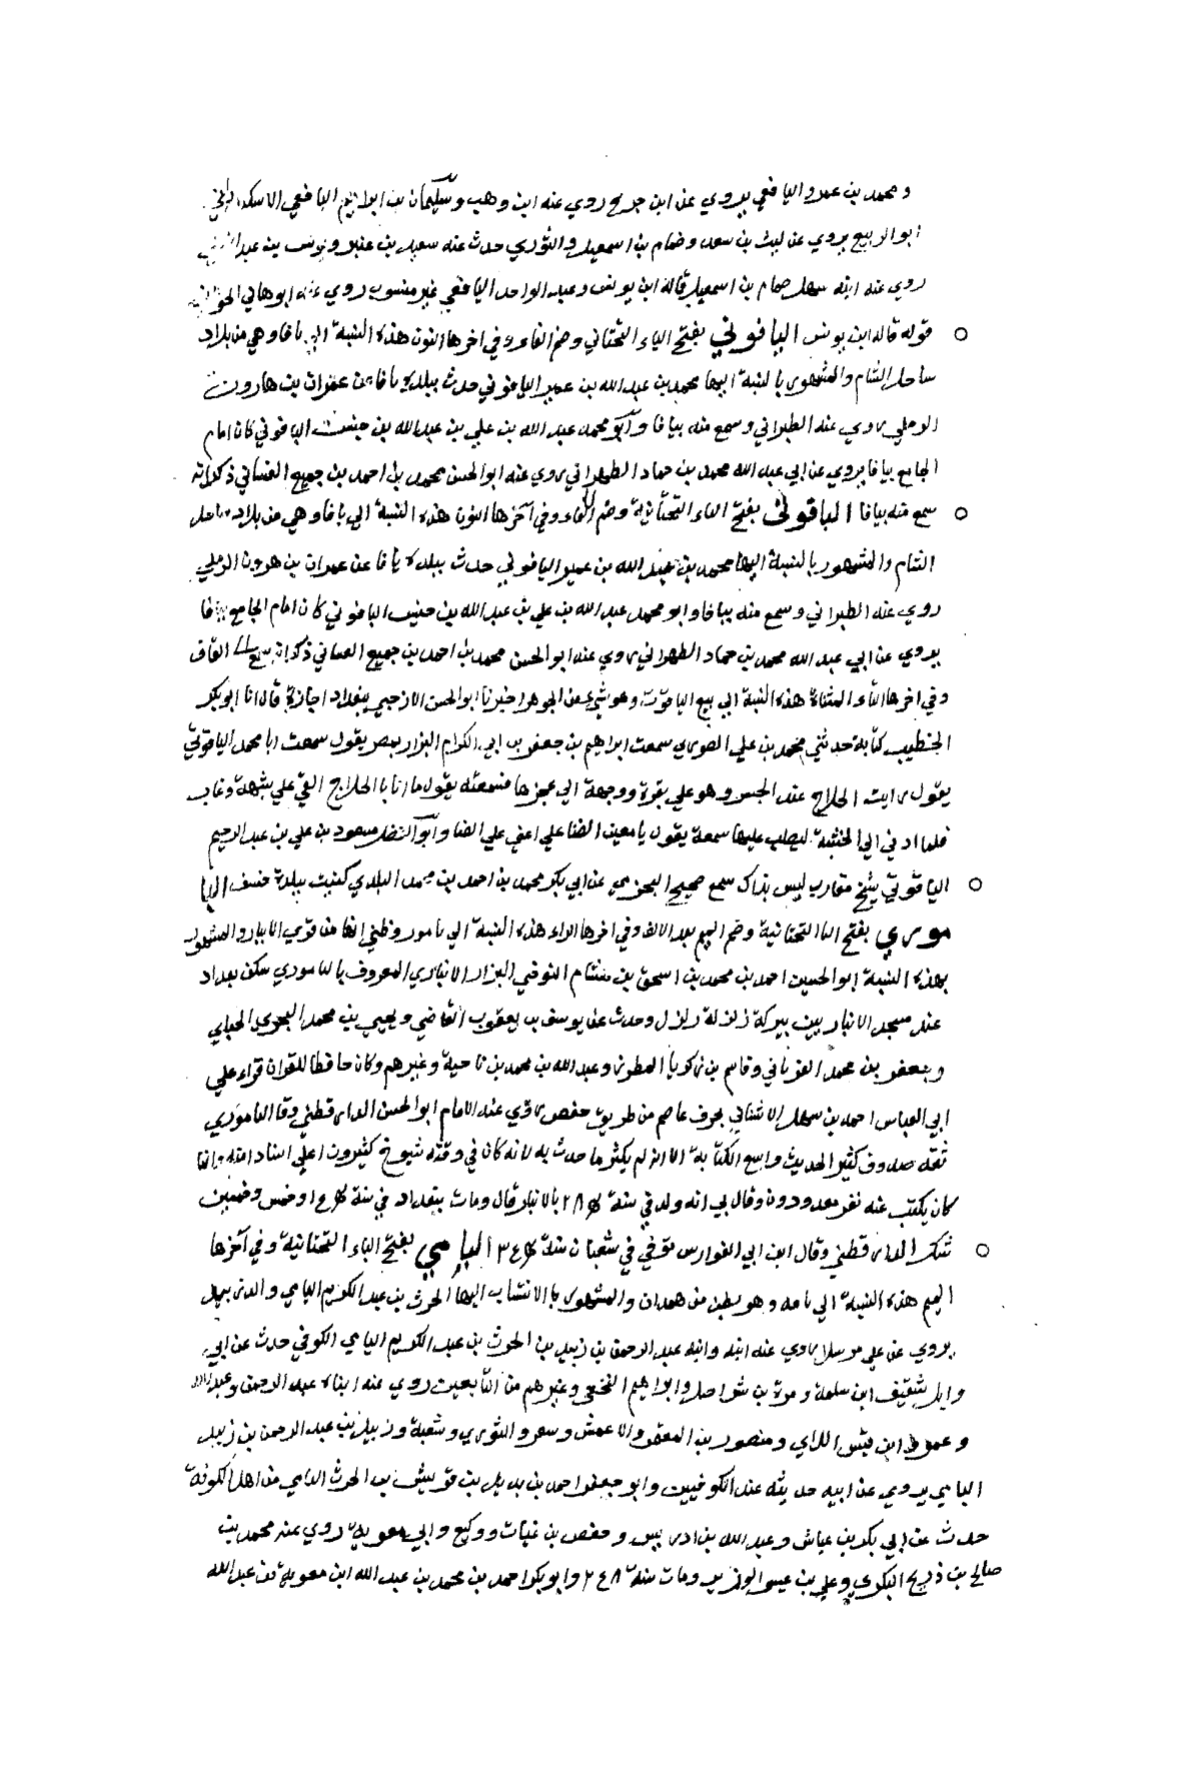 ومحمد بن عمرو اليافعي يروي عن ابن جريج روي عنه ابن وهب وسليمان بن ابراهيم اليافعي الاسكندراني
ابو الربيع يروي عن ليث بن سعد وضمام بن اسمعيل والثوري حدث عنه سعيد بن عفير ويونس بن عبد
روي عنه ابنه سهل ضمام بن اسمعيل قاله ابن يونس وعبد الواحد اليافعي غير منسوب روي عنه ابو هاني الخولاني
قوله قاله ابن يونس اليافوني بفتح الياء التحتاني وضم الفاء وفي اخرها النون هذه النسبة الي يافا وهي من بلاد
ساحل الشام والمشهور بالنسبة اليها محمد بن عبد الله بن عمير اليافوني حدث ببلده يافا عن عمران بن هارون
الرملي روي عنه الطبراني وسمع منه بيافا وابو محمد عبد الله بن علي بن عبد الله بن حنيف اليافوني كان امام
الجامع بيافا يروي عن ابي عبد الله محمد بن حماد الطهراني روي عنه ابو الحسن محمد بن احمد بن جميع الغساني ذكر انه
سمع منه بيافا اليافوني بفتح الياء التحتانية وضم الفاء وفي آخرها النون هذه النسبة الي يافا وهي من بلاد ساحل
الشام والمشهور بالنسبة اليها محمد بن عبد الله بن عمير اليافوني حدث ببلده يافا عن عمران بن هرون الرملي
روي عنه الطبراني وسمع منه بيافا وابو محمد عبد الله بن علي بن عبد الله بن حنيف اليافوني كان امام الجامع بيافا
يروي عن ابي عبد الله محمد بن حماد الطهراني روي عنه ابو الحسن محمد بن احمد بن جميع الغساني ذكر انه سمع القاف
وفي اخرها التاء المثناة هذه النسبة الي بيع الياقوت وهو شيء من الجوهر اخبرنا ابو الحسن الازجي ببغداد اجازة قال انا ابو بكر
الخطيب كتابة حدثني محمد بن علي الصوري سمعت ابراهيم بن جعفر بن ابي الكرام البزار بمصر يقول سمعت ابا محمد الياقوتي
يقول رايت الحلاج عند الجسر وهو علي بقرة ووجهه الي عجزها فسمعته يقول ما انا بالحلاج القي علي شبهه وغاب
فلما ادني الي الخشبة ليصلب عليها سمعته يقول يا معين الضنا علي اعني علي الضنا وابو النضر مسعود بن علي بن عبد الرحيم
الياقوتي شيخ مقارب ليس بذاك سمع صحيح البحري عن ابي بكر محمد بن احمد بن محمد البلدي كتبت ببلدة خسف اليا
موري بفتح اليا التحتانية وضم الميم بعد الالف وفي اخرها الراء هذه النسبة الي يامور وظني انها من قري الانبار والمشهور
بهذه النسبة ابو الحسين احمد بن محمد بن اسحق بن هشام التوخي البزار الانباري المعروف باليا موري سكن بغداد
عند مسجد الانبار بين بيركة زلزلة زلزل وحدث عن يوسف بن يعقوب القاضي ويحيي بن محمد البحري الحباي
وجعفر بن محمد الفريابي وقاسم بن زكريا المطرز وعبد الله بن محمد بن ناحية وغيرهم وكان حافظا للقران قراء علي
ابي العباس احمد بن سهل الاشناني بحرف عاصم من طريق حفص روي عنه الامام ابو الحسن الدارقطني وقا اليا موري
ثقة صدوق كثير الحديث واسع الكتابة الا انه لم يكثر ما حدث به لانه كان في وقته شيوخ كثيرون اعلي اسنادا منه وانما
كان يكتب عنه نفر معدودون وقال لي انه ولد في سنة بالانبار قال ومات ببغداد في سنة او خمس وخمسين
شك الدارقطني وقال ابن ابي الفوارس توفي في شعبان سنة اليامي بفتح الياء التحتانية وفي آخرها
الميم هذه النسبة الي يامه وهو بطن من همدان والمشهور بالانتساب اليها الحرث بن عبد الكريم اليامي والد زبيد
يروي عن علي مرسلا روي عنه ابنه وابنه عبد الرحمن بن زبيد بن الحرث بن عبد الكريم اليامي الكوفي حدث عن ابي
وايل شقيق ابن سلمة ومرة بن شراحيل وابراهيم النخعي وغيرهم من التابعين روي عنه ابناه عبد الرحمن وعبد الله
وعمرو ابن قيس الملاي ومنصور بن المعتمر والاعمش ومسعر والثوري وشعبة وزبيد بن عبد الرحمن بن زبيد
اليامي يروي عن ابيه حديثه عند الكوفيين وابو جعفر احمد بن بديل بن قريش بن الحرث اليامي من اهل الكوفة
حدث عن ابي بكر بن عياش وعبد الله بن ادريس وحفص بن غياث ووكيع وابي معوية روي عنه محمد بن
صالح بن ذريح العكبري وعلي بن عيسي الوزير ومات سنة ٢٤٨ وابو بكر احمد بن محمد بن عبد الله ابن معوية بن عبد الله